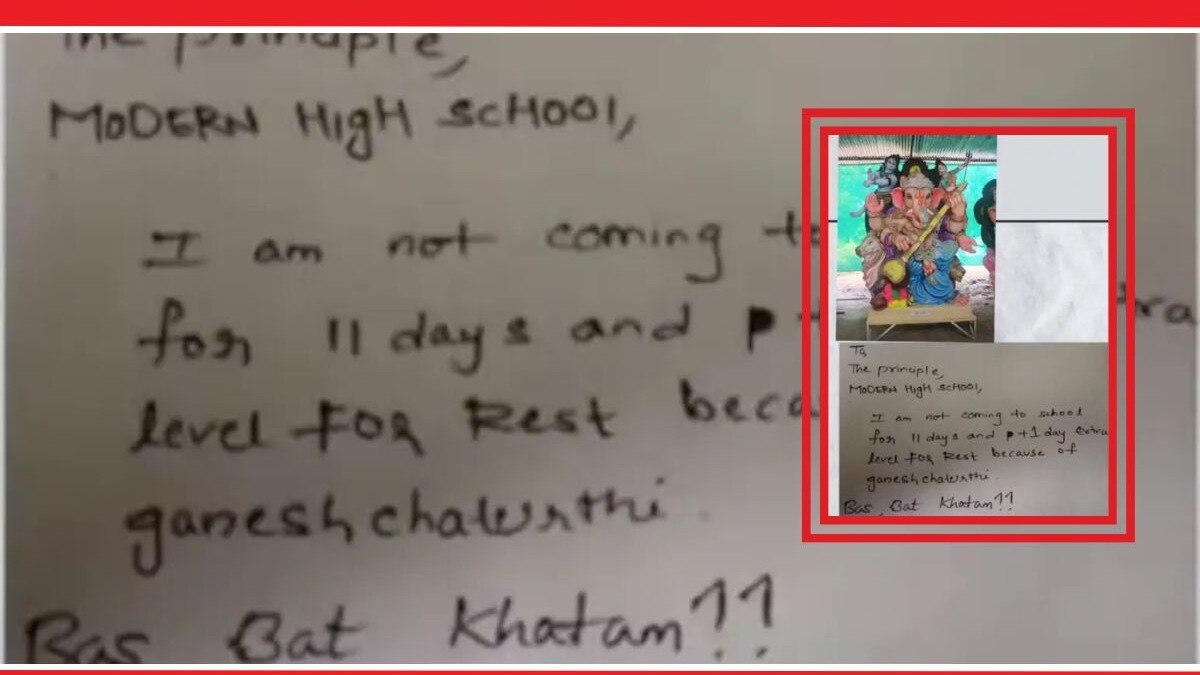 The principle,
MODERN HIgH SCHOOl,
I am not coming to
for 11 days and p+ tra
level FOR Rest beca
ganesh chaturthi.
Bas Bat Khatam!!
To,
The principle,
MODERN HIgH SCHOOl,
I am not coming to school
for 11 days and p+1 day extra
level FOR Rest because of
ganesh chaturthi.
Bas, Bat Khatam!!